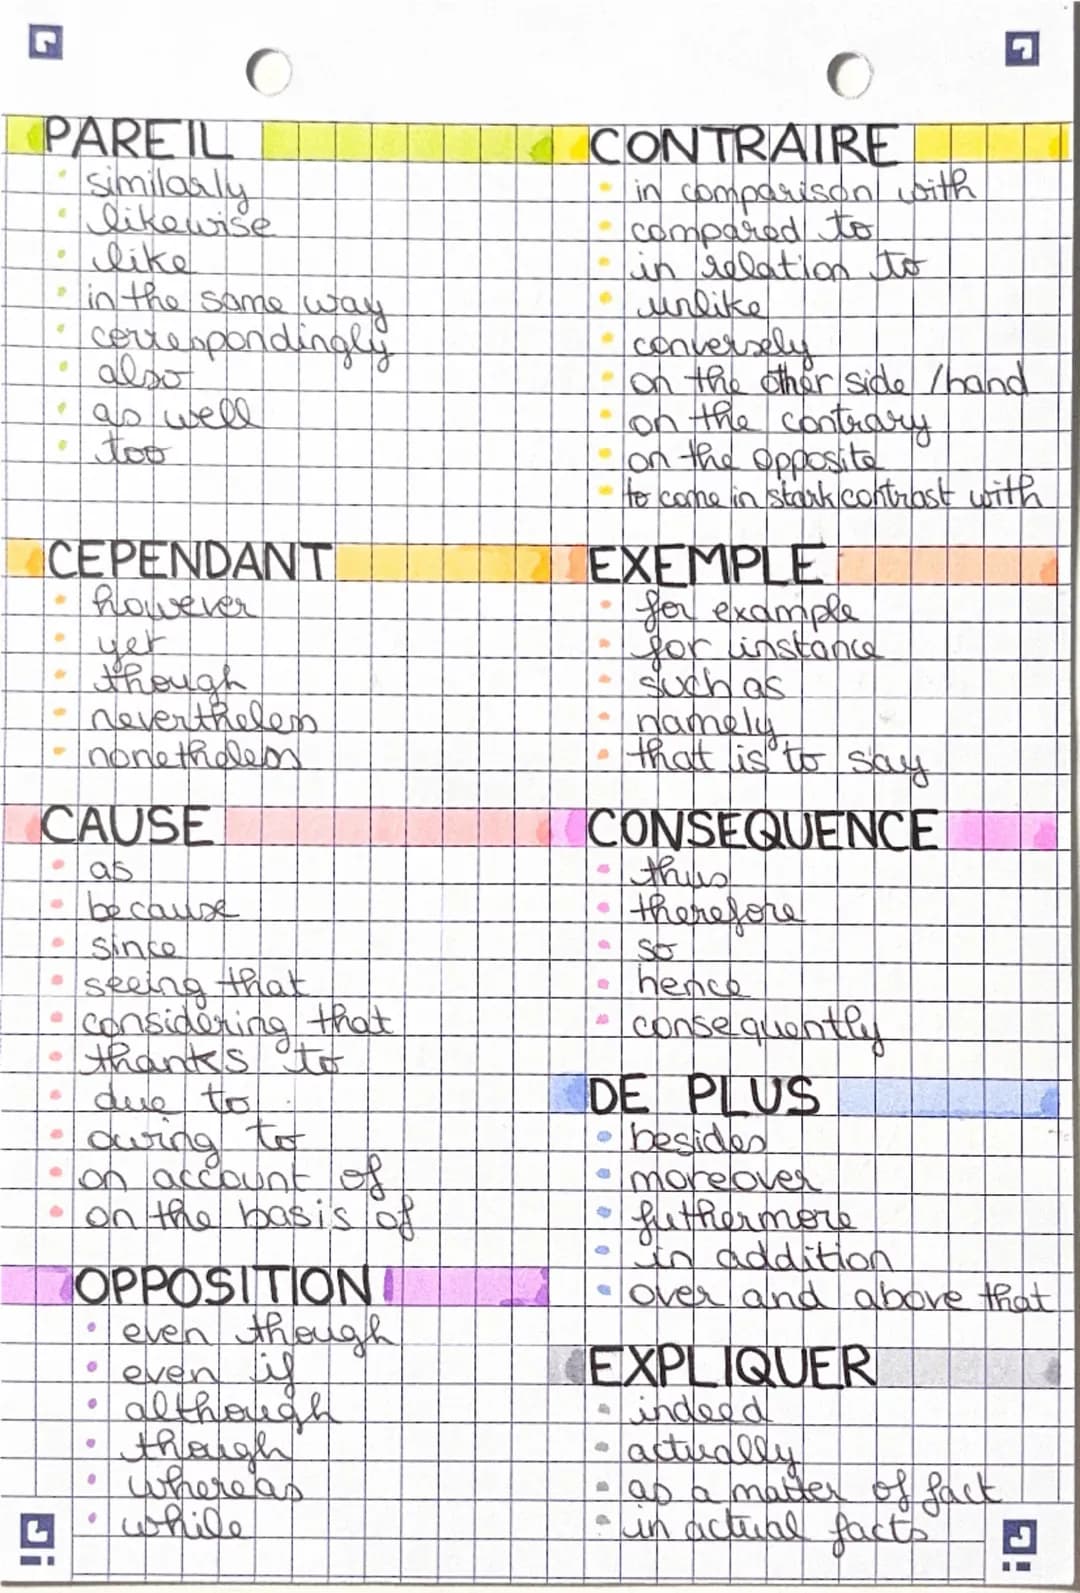 PAREIL
similarly
likewise
like
in the same way
correspondingly
also
as well
too
CONTRAIRE
in comparison with
compared to
in relation to
unlike
conversely
on the other side / hand
on the contrary
on the opposite
to come in stark contrast with
CEPENDANT
however
yet
though
nevertheless
nonetheless
EXEMPLE
for example
for instance
such as
namely
that is to say
CAUSE
as
because
since
seeing that
considering that
thanks to
due to
owing to
on account of
on the basis of
CONSEQUENCE
thus
therefore
so
hence
consequently
DE PLUS
besides
moreover
futhermore
in addition
over and above that
OPPOSITION
even though
even if
although
though
whereas
while
EXPLIQUER
indeed
actually
as a matter of fact
in actual facts